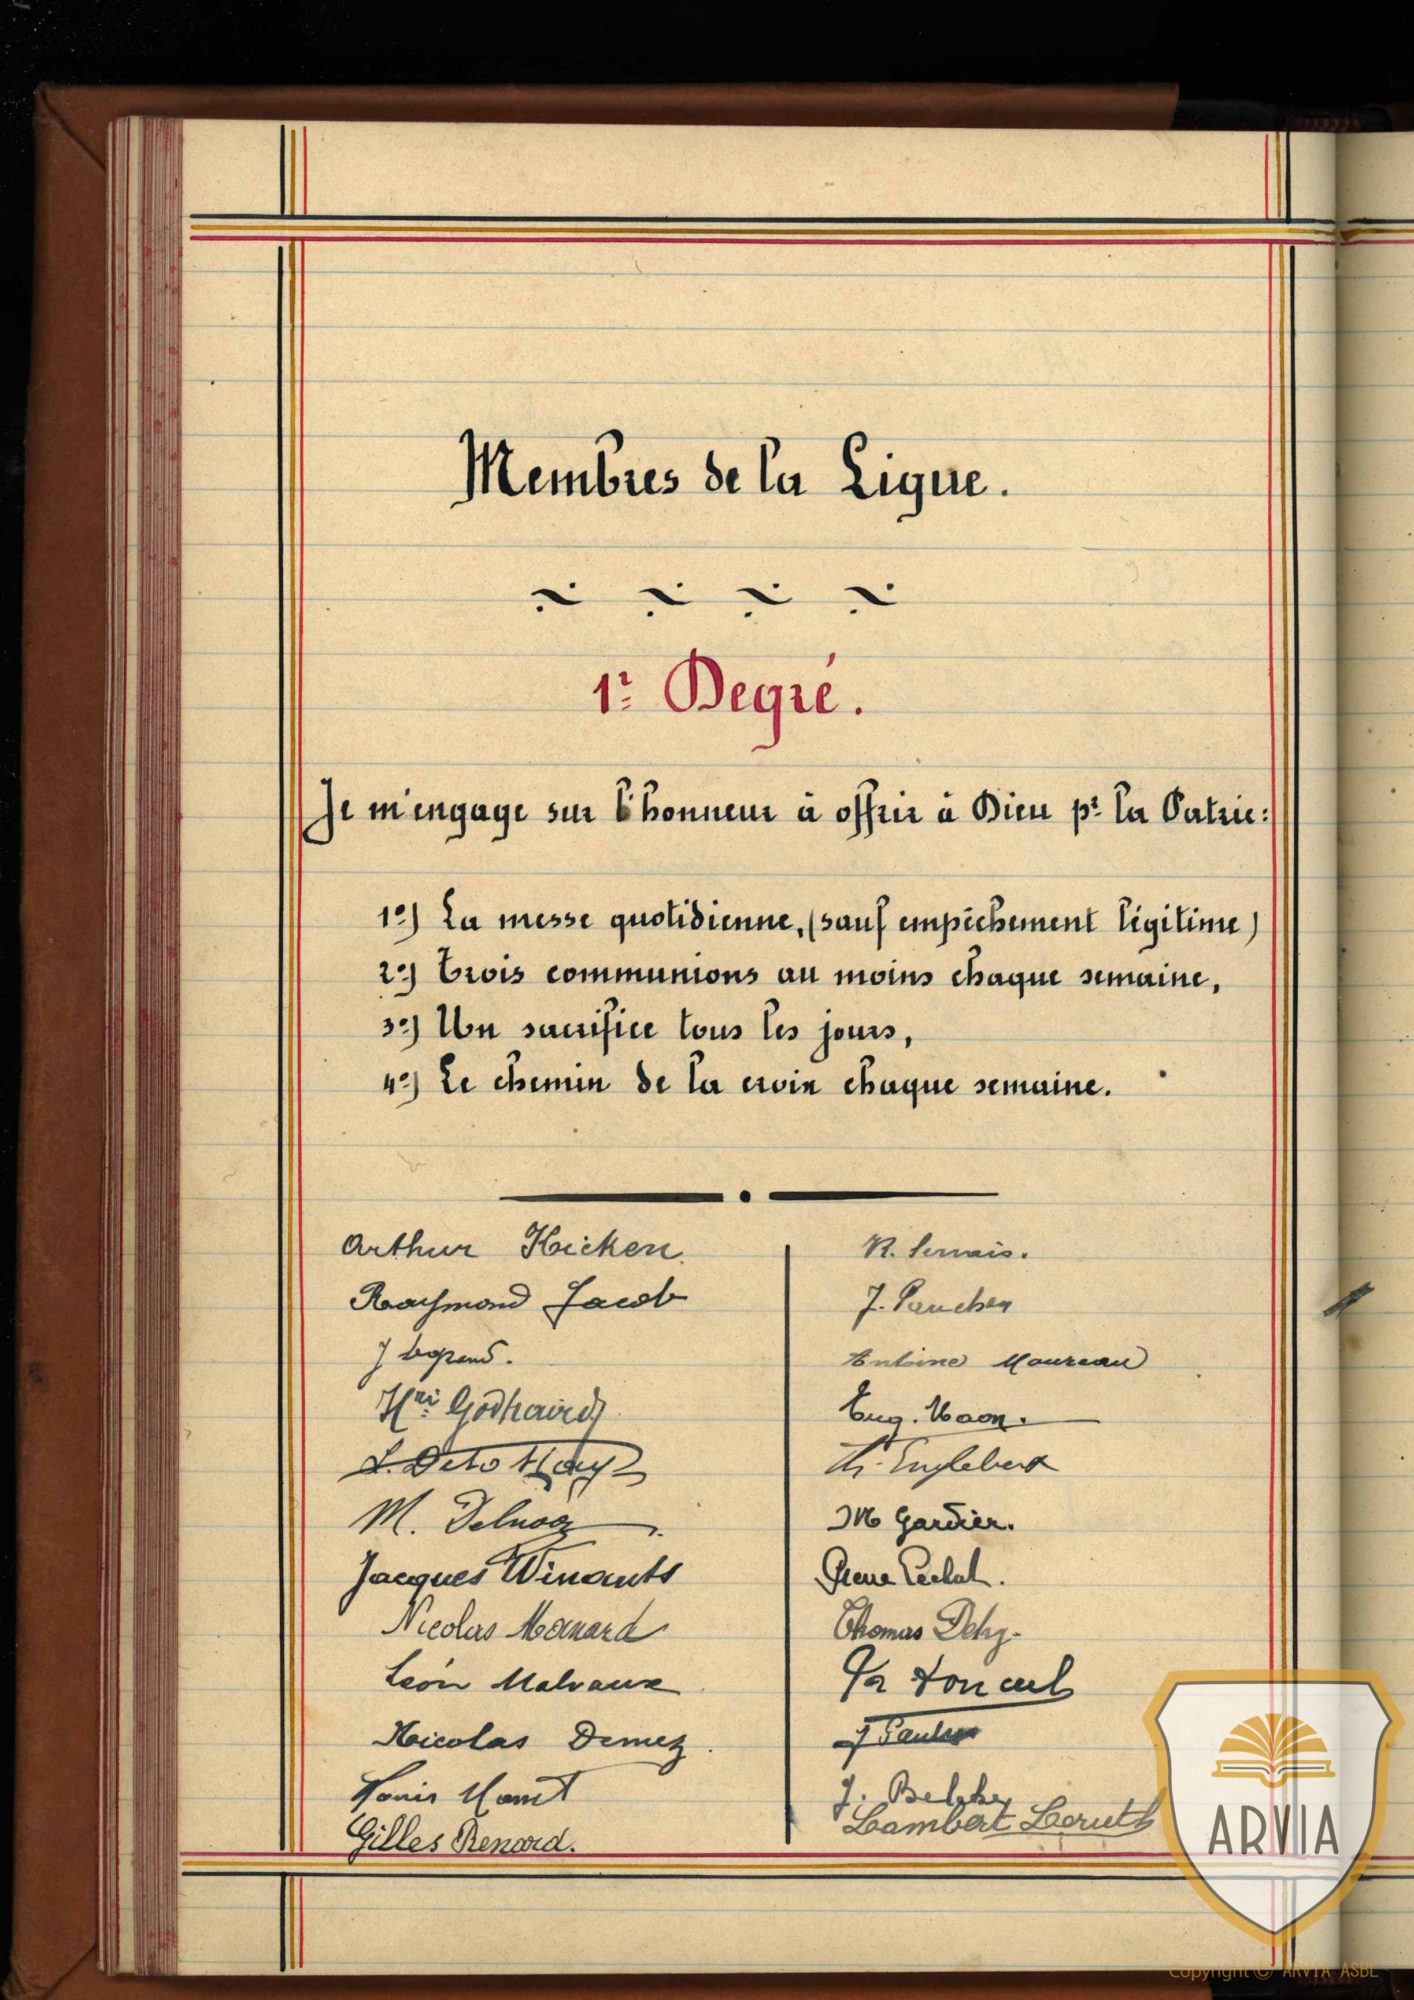 Membres de la Ligue.
1r Degré.
Je m'engage sur l'honneur à offrir à Dieu pr la Patrie:
1º) La messe quotidienne, (sauf empêchement légitime)
2º) Trois communions au moins chaque semaine,
3º) Un sacrifice tous les jours,
4º) Le chemin de la croix chaque semaine.
Arthur Hicken.
Raymond Jacob
J Legrand.
Hri Godhaird
L.
M. Delnooz
Jacques Winants
Nicolas Monard
Léon Malvaux
Nicolas Demez.
Gilles Renard.
R. Servais.
J. Pauchen
Antoine Moureau
Eug. Maon.
Th. Englebert
M Gardier.
Thomas Dehy.
J.
Lambert Leruth
ARVIA
Copyright © ARVIA ASBL